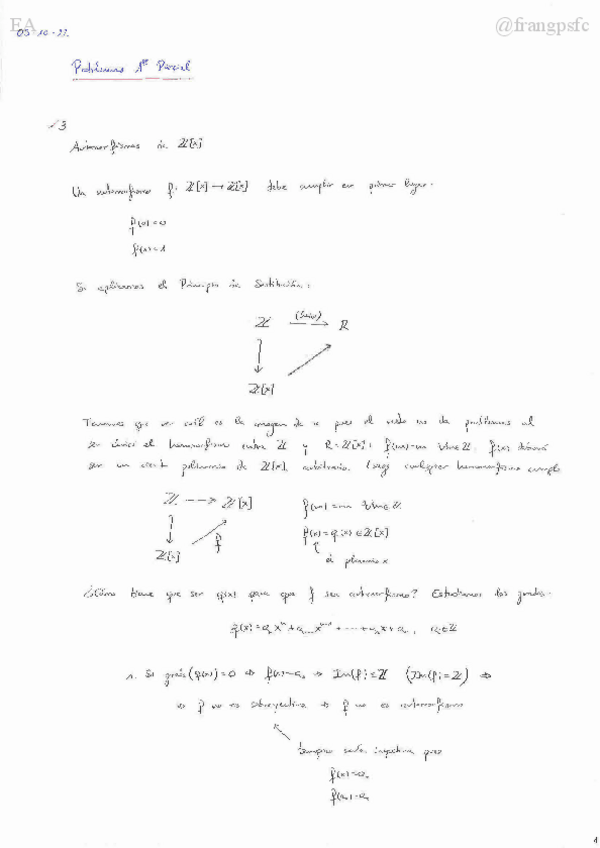 EA
@frangpsfc
03-10-22.
Problemas 1er Parcial
√3
Automorfismos de ℤ[x]
Un automorfismo f: ℤ[x] → ℤ[x] debe cumplir en primer lugar:
f(0)=0
f(1)=1
Si aplicamos el Principio de Sustitución:
ℤ (único) → R
ℤ[x]
Tenemos que ver cuál es la imagen de x pues el resto no da problemas al
ser único el homomorfismo entre ℤ y R=ℤ[x]: f(m)=m ∀m∈ℤ. f(x) deberá
ser un cierto polinomio de ℤ[x], arbitrario. Luego cualquier homomorfismo cumple
ℤ --→ ℤ[x] f(m)=m ∀m∈ℤ.
ℤ[x] f f(x)=q(x)∈ℤ[x]
el polinomio x
¿Cómo tiene que ser q(x) para que f sea automorfismo? Estudiamos los grados.
q(x)=aₙxⁿ+aₙ₋₁xⁿ⁻¹+⋯+a₁x+a₀, aᵢ∈ℤ
1. Si grado(q(x))=0 ⇒ f(x)=a₀ ⇒ Im(f)⊆ℤ (Im(f)=ℤ) ⇒
⇒ f no es sobreyectiva ⇒ f no es automorfismo
tampoco sería inyectiva pues
f(x)=a₀
f(a₀)=a₀
1